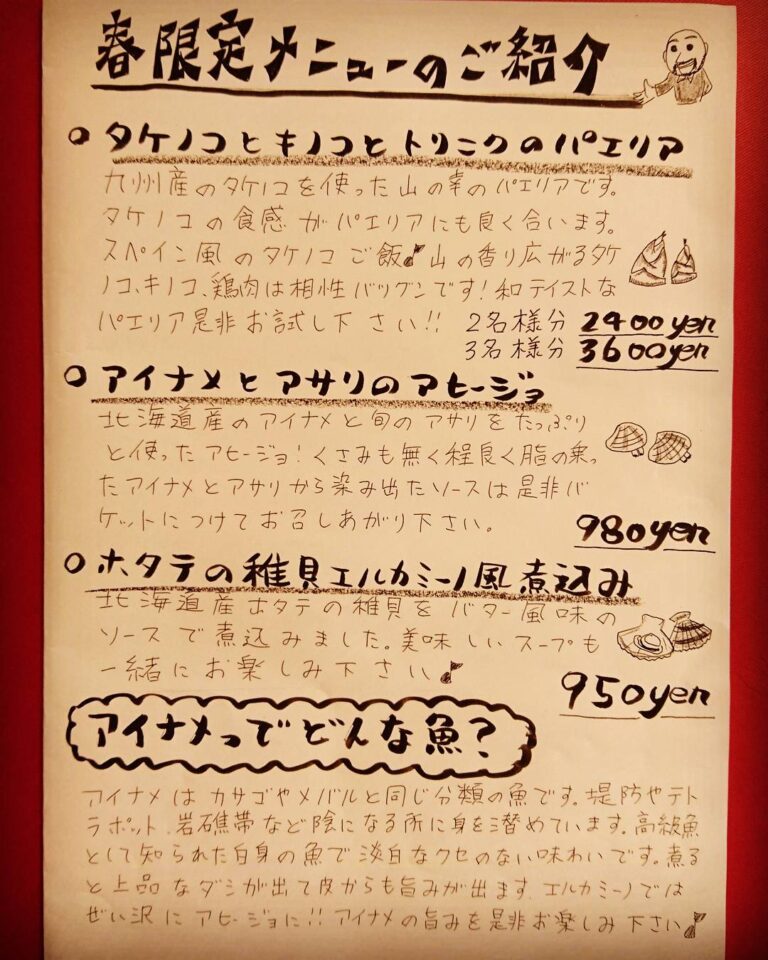 春限定メニューのご紹介
○タケノコとキノコとトリニクのパエリア
九州産のタケノコを使った山の幸のパエリアです。
タケノコの食感がパエリアにも良く合います。
スペイン風のタケノコご飯♪山の香り広がるタケ
ノコ、キノコ、鶏肉は相性バツグンです!和テイストな
パエリア是非お試し下さい!! 2名様分 2400yen
3名様分 3600yen
○アイナメとアサリのアヒージョ
北海道産のアイナメと旬のアサリをたっぷり
と使ったアヒージョ!くさみも無く程良く脂の乗っ
たアイナメとアサリから染み出たソースは是非バ
ケットにつけてお召しあがり下さい。
980yen
○ホタテの稚貝エルカミーノ風煮込み
北海道産ホタテの稚貝をバター風味の
ソースで煮込みました。美味しいスープも
一緒にお楽しみ下さい♪
950yen
アイナメってどんな魚?
アイナメはカサゴやメバルと同じ分類の魚です。堤防やテト
ラポット、岩礁帯など陰になる所に身を潜めています。高級魚
として知られた白身の魚で淡白なクセのない味わいです。煮る
と上品なダシが出て皮からも旨みが出ます。エルカミーノでは
ぜい沢にアヒージョに!!アイナメの旨みを是非お楽しみ下さい♪